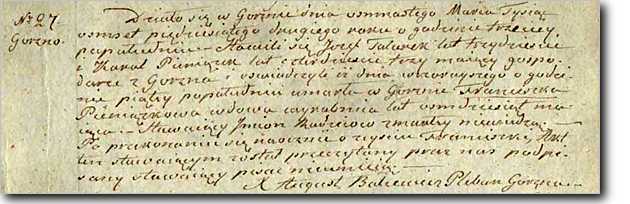 No 27
Gorzno.
Działo się w Gorznie dnia osmnastego Maria Tysiąc
osmset pięćdziesiątego drugiego roku o godzinie trzeciey
popołudniu - Stawili się Jozef Talarek lat trzydzieści
i Karol Pieniązek lat czterdzieści trzy maiący gospo
darze z Gorzna i oswiadczyli iż dnia wczorayszego o godzi
nie piątey popołudniu umarła w Gorznie Franciszka
Pieniązkowa wdowa wyrobnica lat osmdziesiąt ma
iąca - Stawaiący Imion Rodziców zmarłey niewiedzą.
Po przekonaniu się naocznie o zeysciu Franciszki, Akt
ten stawaiącym został przeczytany przez nas podpi
sany stawaiący pisac nieumieią
X August Pleban Gorzna